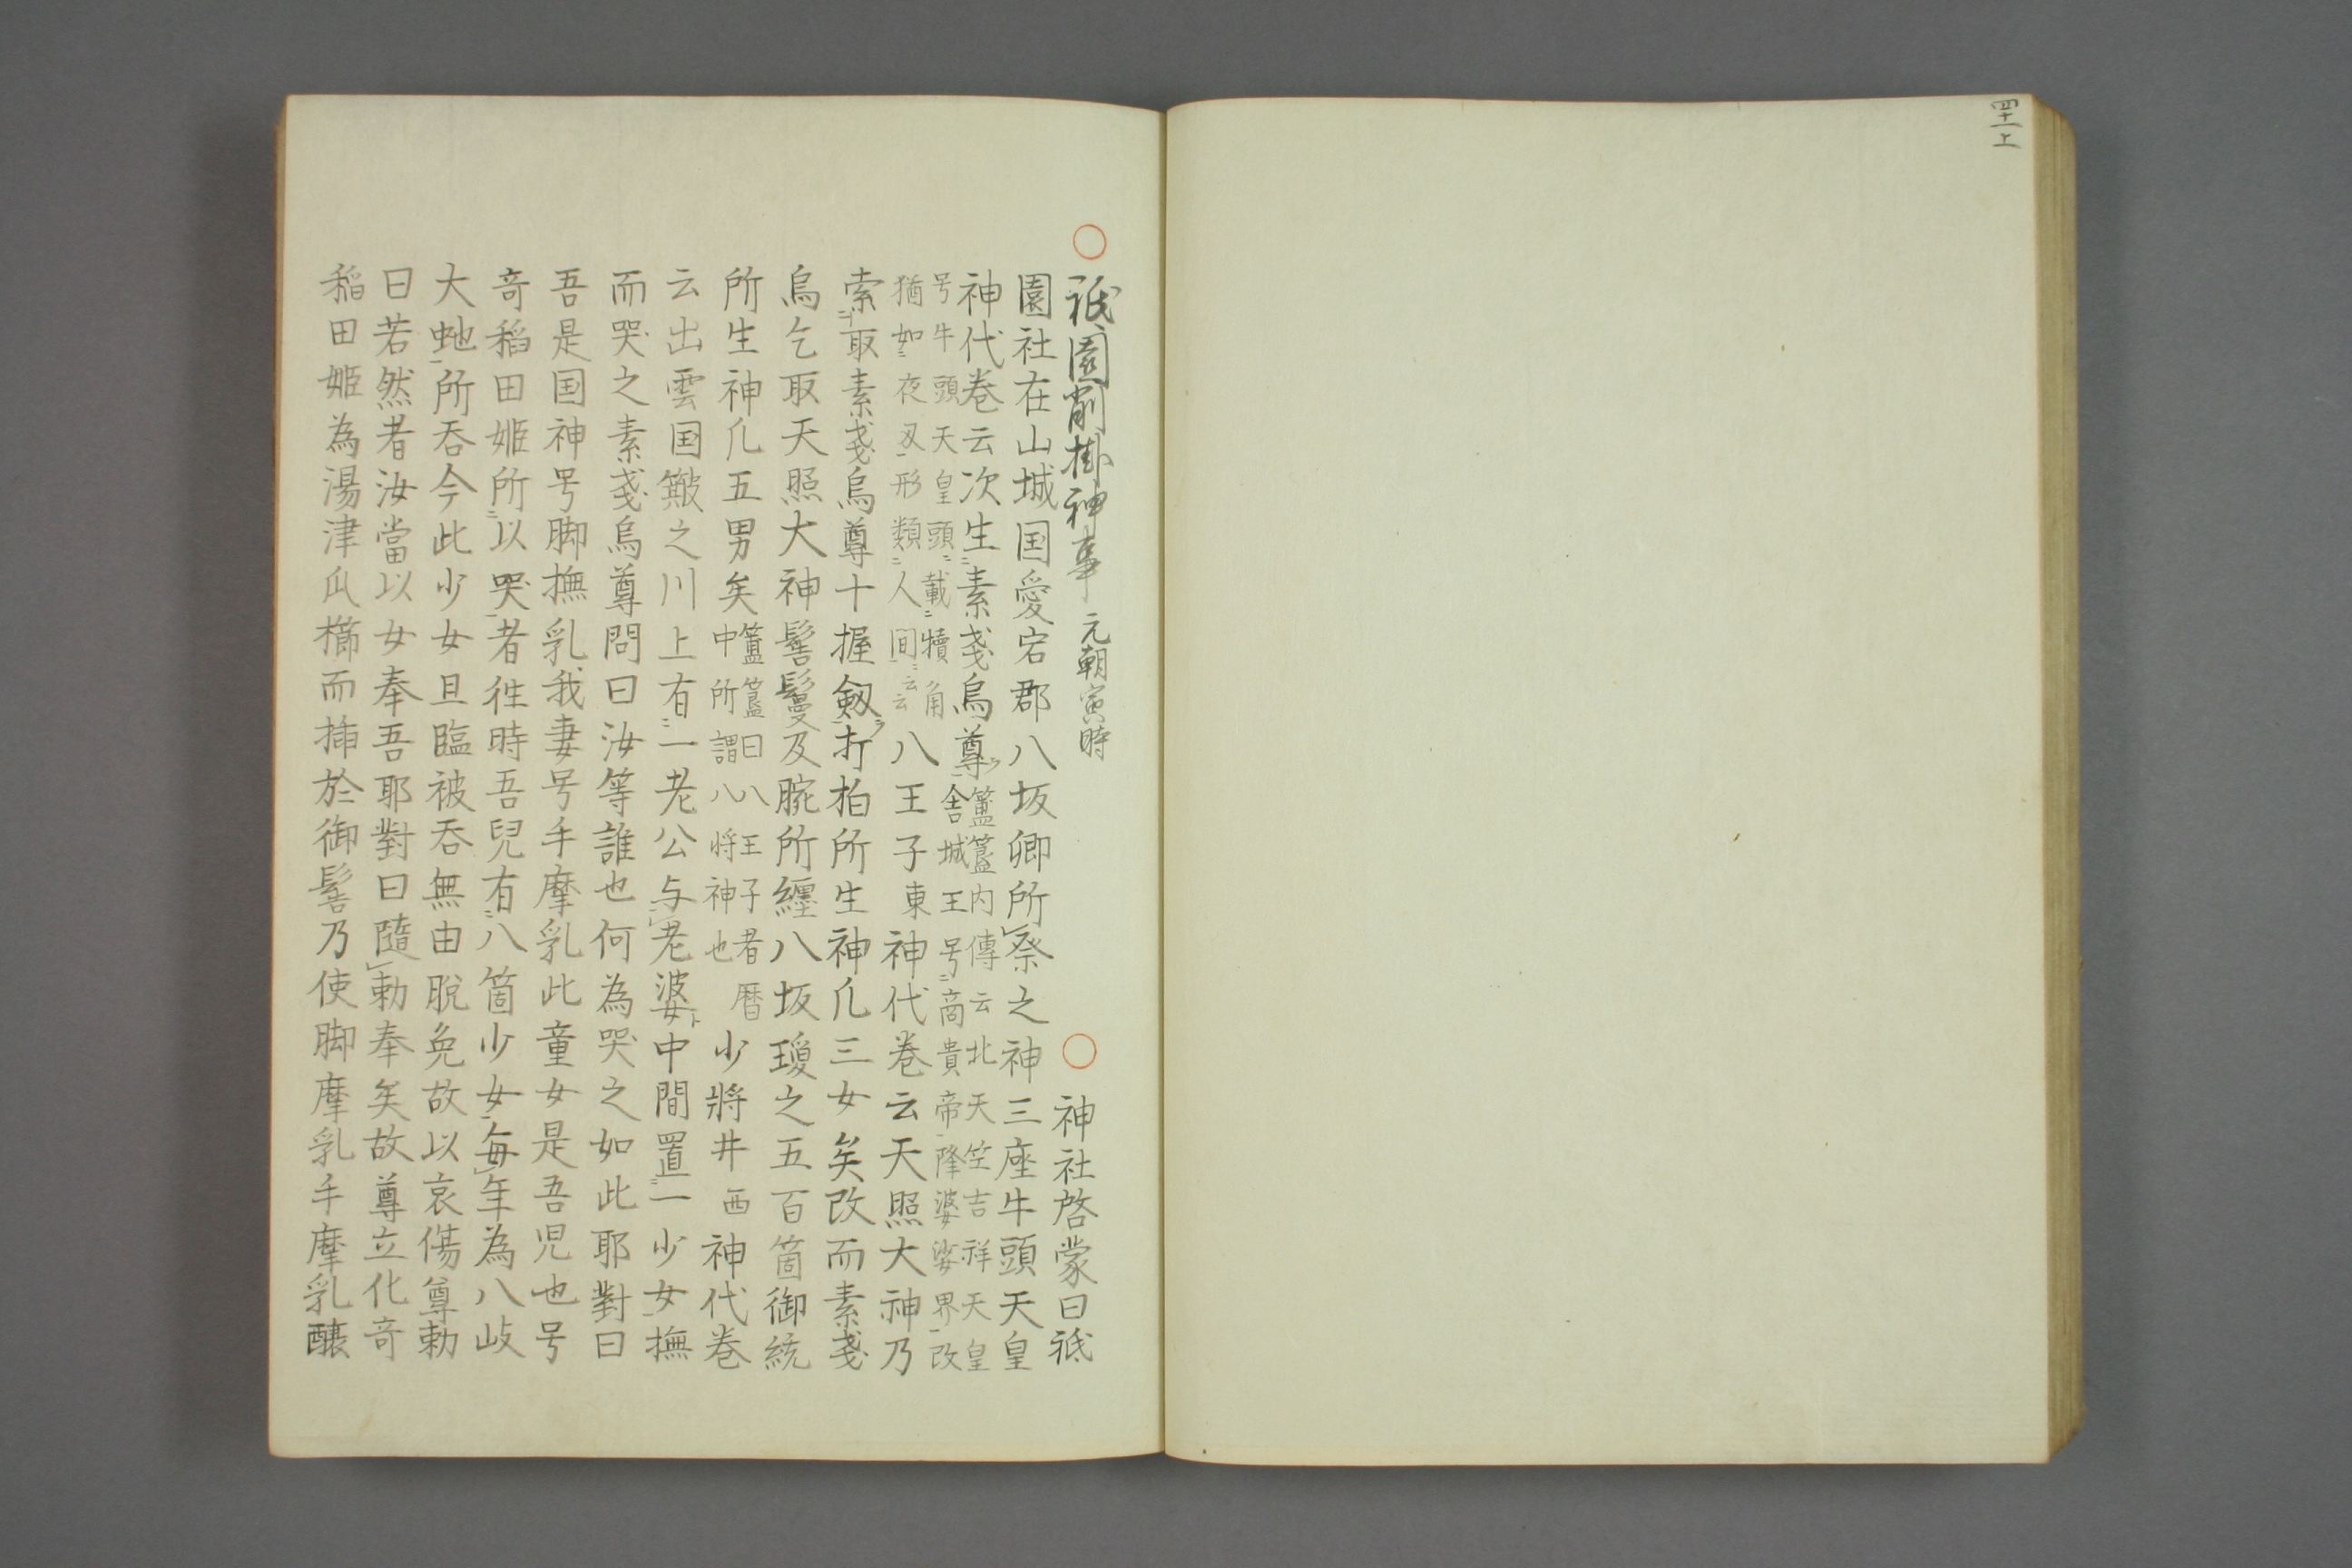 四十一上
○祇園削掛神事 元朝寅時 ○神社啓蒙曰祇
園社在山城国愛宕郡八坂卿所祭之神三座牛頭天皇
神代巻云次生素戔烏尊 簠簋内傳云北天竺吉祥天皇
舎城王号商貴帝降婆娑界改
号牛頭天皇頭載犢角
猶如夜叉形類人間云云 八王子東神代巻云天照大神乃
索取素戔烏尊十握劔打拍所生神凢三女矣改而素戔
烏乞取天照大神髻鬘及腕所纒八坂瓊之五百箇御統
所生神凢五男矣 簠簋曰八王子者暦
中所謂八将神也 少將井西神代巻
云出雲国簸之川上有一老公与老婆中間置一少女撫
而哭之素戔烏尊問曰汝等誰也何為哭之如此耶對曰
吾是国神号脚撫乳我妻号手摩乳此童女是吾児也号
竒稲田姫所以哭者徃時吾兒有八箇少女毎年為八岐
大虵所呑今此少女且臨被呑無由脱免故以哀傷尊勅
曰若然者汝當以女奉吾耶對曰隨勅奉矣故尊立化竒
稲田姫為湯津爪櫛而挿於御髻乃使脚摩乳手摩乳醸